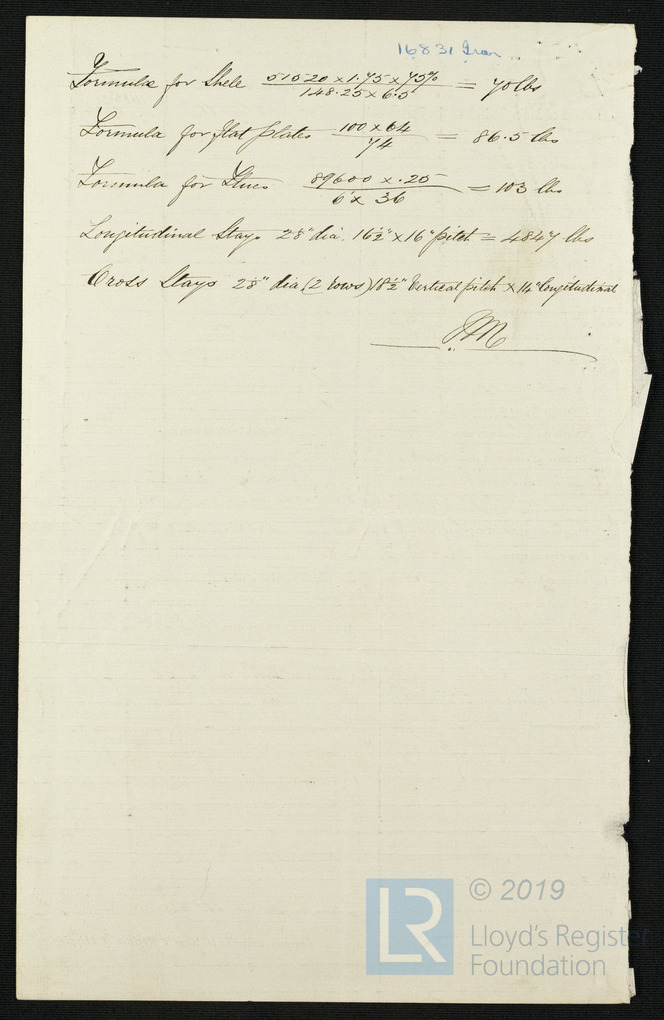 16831 Iron
Formula for Shell 51520 x 1.75 x 75% / 148.25 x 6.5 = 70 lbs
Formula for flat plates 100 x 64 / 74 = 86.5 lbs
Formula for Flues 89600 x .25 / 6' x 36 = 103 lbs
Longitudinal Stays 2⅜" dia. 16½" x 16" pitch = 4847 lbs
Cross Stays 2⅜" dia (2 rows) 18½" Vertical pitch x 14" longitudinal
LR
© 2019
Lloyd's Register
Foundation